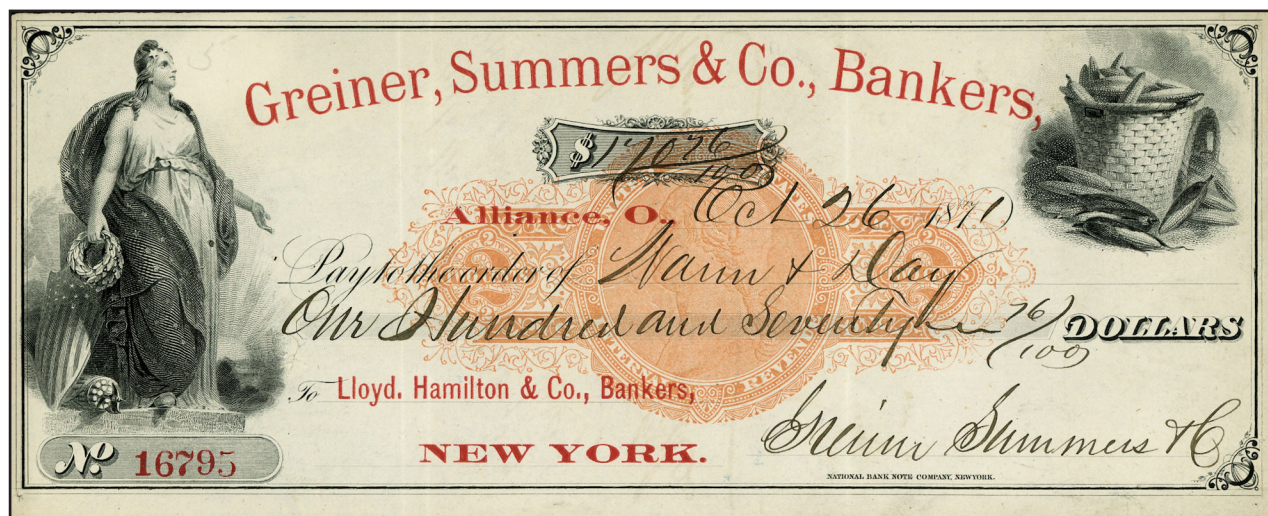 Greiner, Summers & Co., Bankers,
$ 170 76/100
Alliance, O., Oct 26 1871
Pay to the order of & Day
One Hundred and Seventy 76/100 DOLLARS
2 2
REVENUE
To Lloyd. Hamilton & Co., Bankers,
NEW YORK.
Greiner Summers & Co
No. 16795
NATIONAL BANK NOTE COMPANY, NEW YORK.